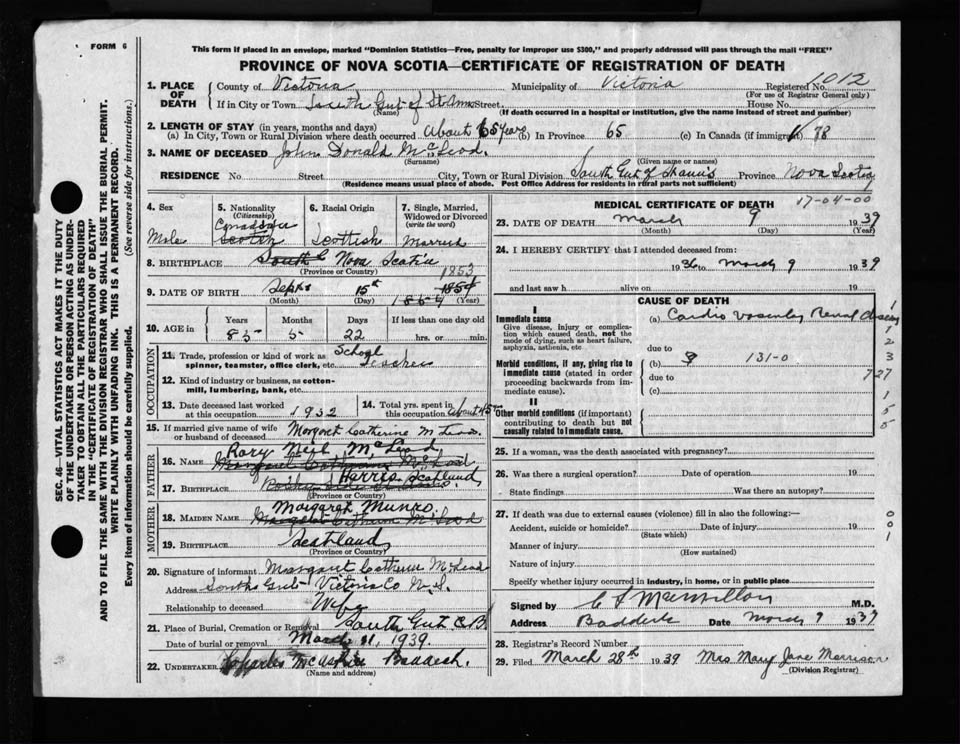 FORM 6
This form if placed in an envelope, marked "Dominion Statistics—Free, penalty for improper use $300," and properly addressed will pass through the mail "FREE"
PROVINCE OF NOVA SCOTIA—CERTIFICATE OF REGISTRATION OF DEATH
SEC. 46—VITAL STATISTICS ACT MAKES IT THE DUTY
OF THE UNDERTAKER OR PERSON ACTING AS UNDER-
TAKER TO OBTAIN ALL THE PARTICULARS REQUIRED
IN THE "CERTIFICATE OF REGISTRATION OF DEATH"
AND TO FILE THE SAME WITH THE DIVISION REGISTRAR WHO SHALL ISSUE THE BURIAL PERMIT.
WRITE PLAINLY WITH UNFADING INK. THIS IS A PERMANENT RECORD.
Every item of information should be carefully supplied. (See reverse side for instructions).
1. PLACE OF DEATH County of Victoria Municipality of Victoria Registered No. 1012
(For use of Registrar General only)
If in City or Town South Gut of St Anns Street House No.
(Name) (If death occurred in a hospital or institution, give the name instead of street and number)
2. LENGTH OF STAY (in years, months and days)
(a) In City, Town or Rural Division where death occurred About 65 years (b) In Province 65 (c) In Canada (if immigrant) 78
3. NAME OF DECEASED John Donald McLeod
(Surname) (Given name or names)
RESIDENCE No. Street City, Town or Rural Division South Gut of St Anns Province Nova Scotia
(Residence means usual place of abode. Post Office Address for residents in rural parts not sufficient)
4. Sex 5. Nationality (Citizenship) 6. Racial Origin 7. Single, Married, Widowed or Divorced (write the word)
Canadian
Male Scotch Scottish Married
8. BIRTHPLACE South G Nova Scotia
(Province or Country)
1853
9. DATE OF BIRTH Sept 15th 1854
(Month) (Day) 1854 (Year)
10. AGE in Years Months Days If less than one day old
85 5 22 hrs. or min.
OCCUPATION
11. Trade, profession or kind of work as spinner, teamster, office clerk, etc. School Teacher
12. Kind of industry or business, as cotton-mill, lumbering, bank, etc.
13. Date deceased last worked at this occupation 1932 14. Total yrs. spent in this occupation About 45
15. If married give name of wife or husband of deceased Margaret Catherine McLeod
FATHER
Rory Neil McLeod
16. NAME Margaret Catherine McLeod
Harris Scotland
17. BIRTHPLACE
(Province or Country)
MOTHER
Margaret Munro
18. MAIDEN NAME Margaret Catherine McLeod
19. BIRTHPLACE Scotland
(Province or Country)
20. Signature of informant Margaret Catherine McLeod
Address South Gut Victoria Co N.S.
Relationship to deceased Wife
21. Place of Burial, Cremation or Removal South Gut C.B.
Date of burial or removal March 11, 1939
22. UNDERTAKER Charles Baddeck
(Name and address)
MEDICAL CERTIFICATE OF DEATH
17-04-00
23. DATE OF DEATH March 9 1939
(Month) (Day) (Year)
24. I HEREBY CERTIFY that I attended deceased from:
1936 to March 9 1939
and last saw h alive on 19
CAUSE OF DEATH
I
Immediate cause
Give disease, injury or complication which caused death, not the mode of dying, such as heart failure, asphyxia, asthenia, etc.
(a) Cardio Renal disease
due to
Morbid conditions, if any, giving rise to immediate cause (stated in order proceeding backwards from immediate cause).
(b) 9 131-0
due to 727
(c)
II
Other morbid conditions (if important) contributing to death but not causally related to Immediate cause.
1
1
2
3
1
5
5
25. If a woman, was the death associated with pregnancy?
26. Was there a surgical operation? Date of operation 19
State findings Was there an autopsy?
27. If death was due to external causes (violence) fill in also the following:—
Accident, suicide or homicide? Date of injury 19
(State which)
Manner of injury
(How sustained)
Nature of injury
Specify whether injury occurred in industry, in home, or in public place
0
0
1
Signed by C L MacMillan M.D.
Address Baddeck Date March 9 1939
28. Registrar's Record Number
29. Filed March 28th 1939 Mrs Mary Jane Morrison
(Division Registrar)